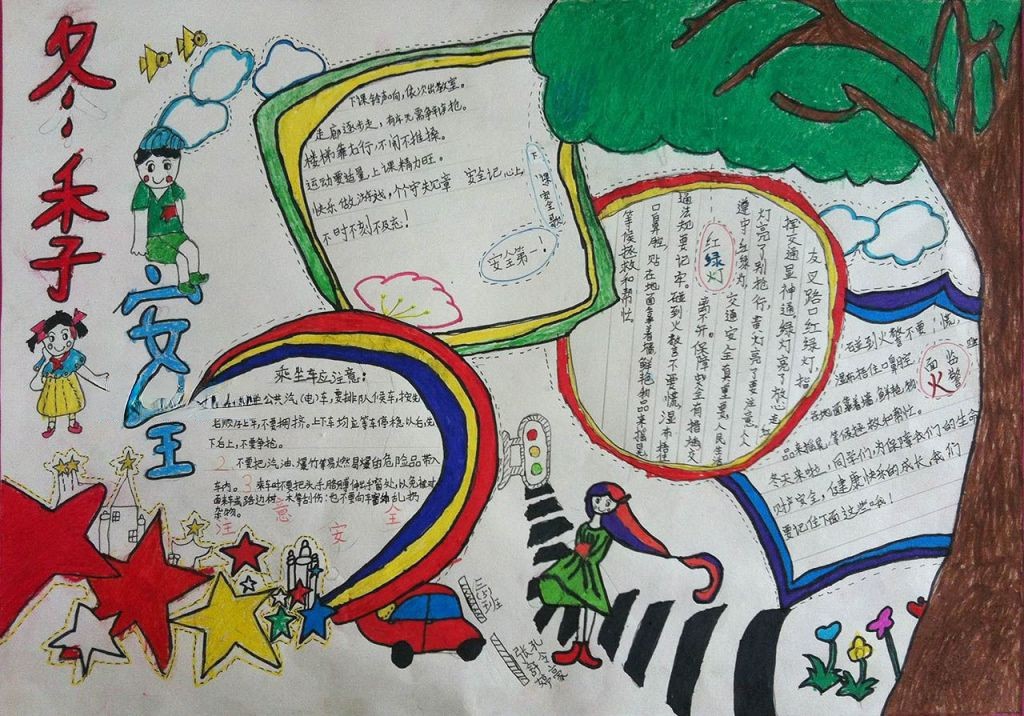 冬季
安全
下课铃声响,依次出教室。
走廊逐步走,有车无需争抢。
楼梯靠右行,不闹不推搡。
上课精力旺。
快乐做游戏,个个守规章 安全记心上,
不时不刻不
下课安全歌
安全第一!
红绿灯
友叉路口红绿灯,指
挥交通显神通,绿灯亮了放心走红
灯亮了别抢行,黄灯亮了要注意,人人
遵守红绿灯,交通安全真重要,人民生活
离不开。保障安全有措施,交
通法规要记牢。碰到火警不要慌,湿布捂住
口鼻腔,贴在地面靠着墙,鲜艳物品来摇晃
等候拯救和帮忙。
碰到火警不要慌,
湿布捂住口鼻腔,
在地面靠着墙,鲜艳物
品来摇晃,等候拯救和帮忙。
冬天来啦,同学们,为保障我们的生命
财产安全,健康快乐的成长,我们
要记住下面这些哦!
面临火警
乘坐车应注意:
公共汽(电)车,要排队候车,按先
后顺序上车,不要拥挤。上下车均应等车停稳以后,先
下后上,不要争抢。
2 不要把汽油、爆竹等易燃易爆的危险品带入
车内。3 乘车时不要把头、手、胳膊伸出窗外,以免被对
面来车或路边树木等刮伤;也不要向车窗外乱扔
杂物。
注意安全
三(5)班